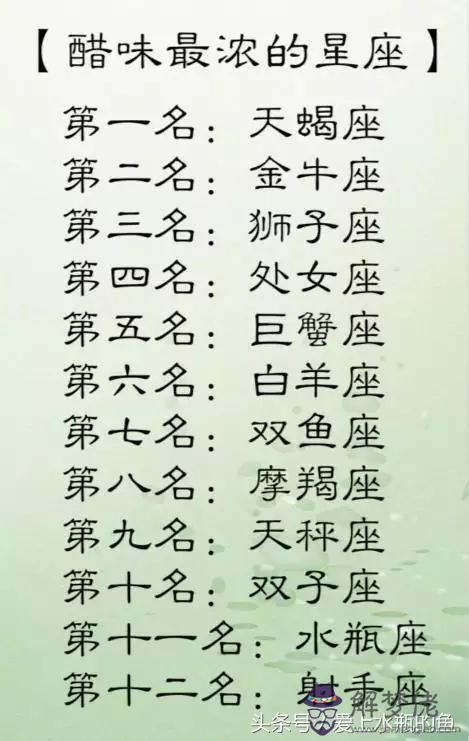 【醋味最浓的星座】
第一名：天蝎座
第二名：金牛座
第三名：狮子座
第四名：处女座
第五名：巨蟹座
第六名：白羊座
第七名：双鱼座
第八名：摩羯座
第九名：天秤座
第十名：双子座
第十一名：水瓶座
第十二名：射手座
解梦佬
头条号 爱上水瓶的鱼